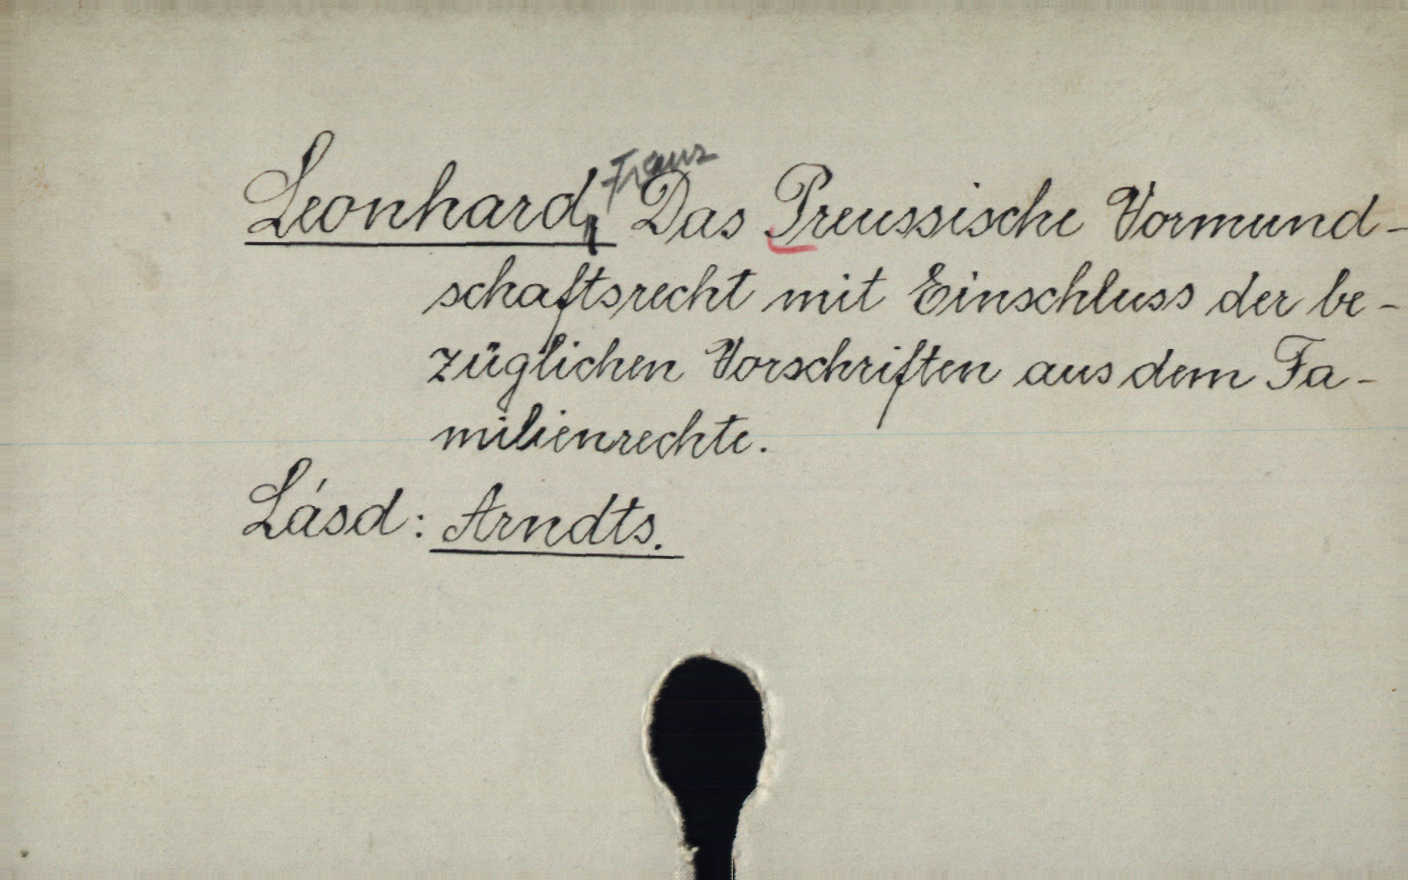 Leonhard, Franz Das Preussische Vormund-
schaftsrecht mit Einschluss der be-
züglichen Vorschriften aus dem Fa-
milienrechte.
Lásd: Arndts.